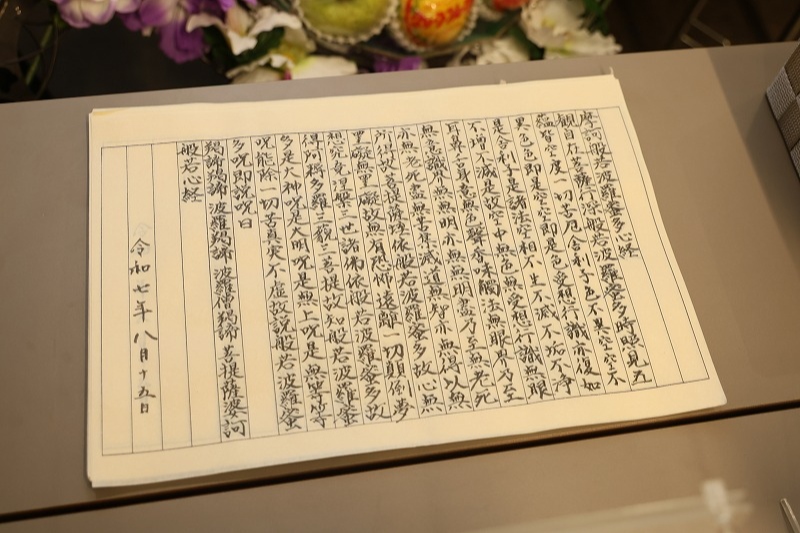 摩訶般若波羅蜜多心経
観自在菩薩行深般若波羅蜜多時照見五
蘊皆空度一切苦厄舎利子色不異空空不
異色色即是空空即是色受想行識亦復如
是舎利子是諸法空相不生不滅不垢不浄
不増不減是故空中無色無受想行識無眼
耳鼻舌身意無色声香味触法無眼界乃至
無意識界無無明亦無無明盡乃至無老死
亦無老死盡無苦集滅道無智亦無得以無
所得故菩提薩埵依般若波羅蜜多故心無
罣礙無罣礙故無有恐怖遠離一切顛倒夢
想究竟涅槃三世諸佛依般若波羅蜜多故
得阿耨多羅三藐三菩提故知般若波羅蜜
多是大神呪是大明呪是無上呪是無等等
呪能除一切苦真実不虚故説般若波羅蜜
多呪即説呪曰
羯諦羯諦 波羅羯諦 波羅僧羯諦 菩提薩婆訶
般若心経
令和七年 八月十五日